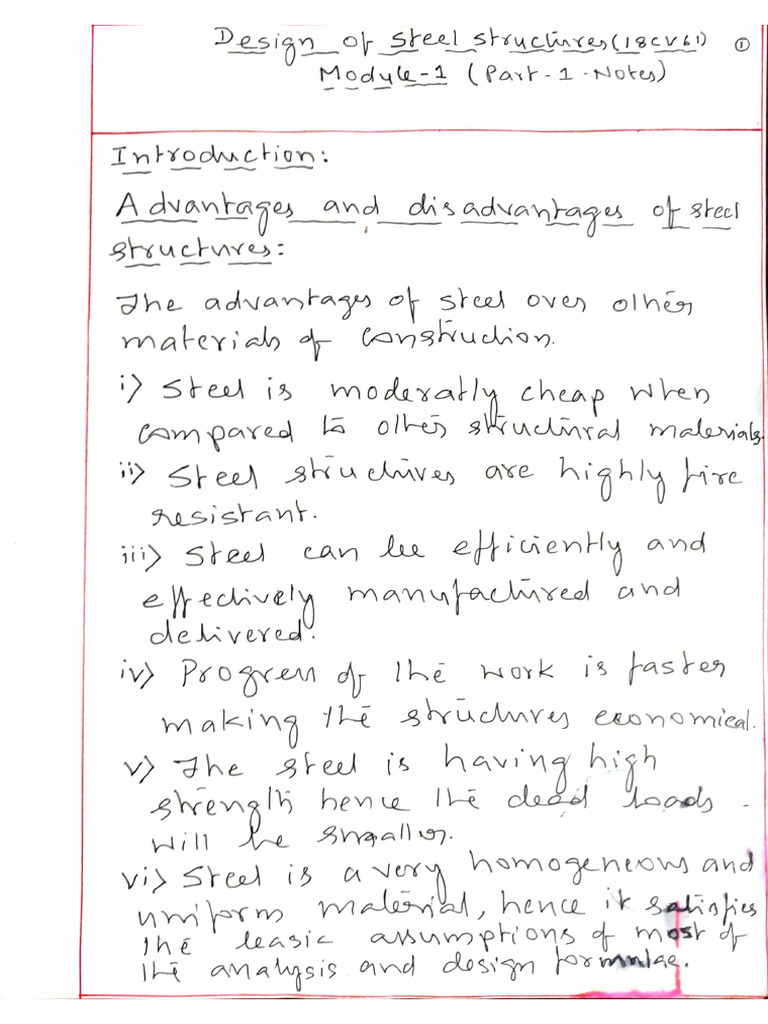 Design of steel structures(18CV61) ①
Module-1 (Part-1-Notes)
Introduction:
Advantages and disadvantages of steel
structures:
The advantages of steel over other
materials of construction.
i) Steel is moderatly cheap when
compared to other structural materials.
ii) Steel structures are highly fire
resistant.
iii) Steel can be efficiently and
effectively manufactured and
delivered.
iv) Progress of the work is faster
making the structures economical.
v) The steel is having high
strength hence the dead loads
will be smaller.
vi) Steel is a very homogeneous and
uniform material, hence it satisfies
the basic assumptions of most of
the analysis and design formulae.